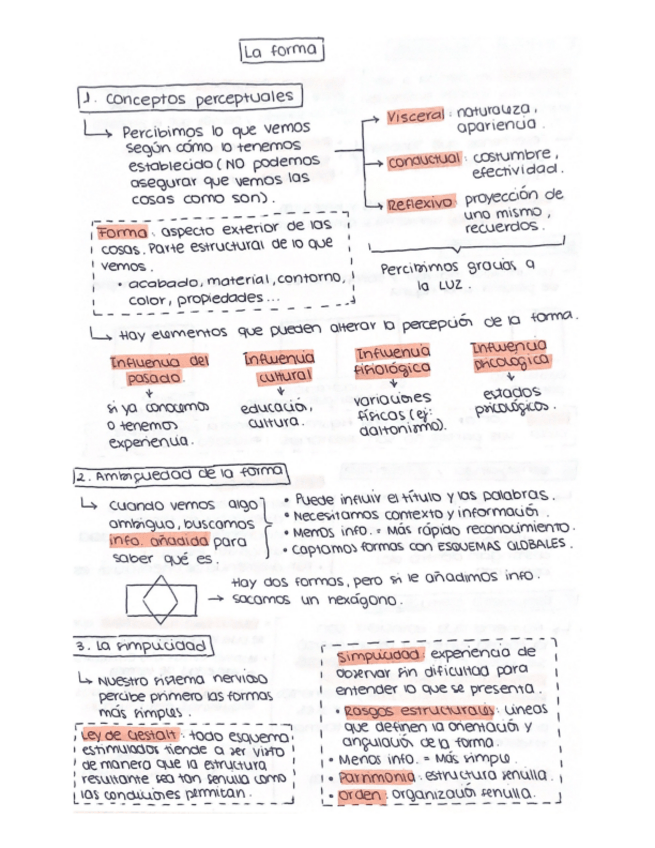 La forma
1. Conceptos perceptuales
Percibimos lo que vemos
según cómo lo tenemos
establecido (NO podemos
asegurar que vemos las
cosas como son).
Visceral: naturaleza,
apariencia.
Conductual: costumbre,
efectividad.
Reflexivo: proyección de
uno mismo,
recuerdos.
Percibimos gracias a
la LUZ.
Forma: aspecto exterior de las
cosas. Parte estructural de lo que
vemos.
• acabado, material, contorno,
color, propiedades...
Hay elementos que pueden alterar la percepción de la forma.
Influencia del
pasado.
si ya conocemos
o tenemos
experiencia.
Influencia
cultural
educación,
cultura.
Influencia
fisiológica
variaciones
físicas (ej:
daltonismo).
Influencia
psicológica
estados
psicológicos.
2. Ambigüedad de la forma
Cuando vemos algo
ambiguo, buscamos
info. añadida para
saber qué es.
• Puede influir el título y las palabras.
• Necesitamos contexto y información.
• Menos info. = Más rápido reconocimiento.
• Captamos formas con ESQUEMAS GLOBALES.
Hay dos formas, pero si le añadimos info.
sacamos un hexágono.
3. La simplicidad
Nuestro sistema nervioso
percibe primero las formas
más simples.
Ley de Gestalt: todo esquema
estimulador tiende a ser visto
de manera que la estructura
resultante sea tan sencilla como
las condiciones permitan.
Simplicidad: experiencia de
observar sin dificultad para
entender lo que se presenta.
• Rasgos estructurales: líneas
que definen la orientación y
angulación de la forma.
• Menos info. = Más simple.
• Parsimonia: estructura sencilla.
• Orden: organización sencilla.